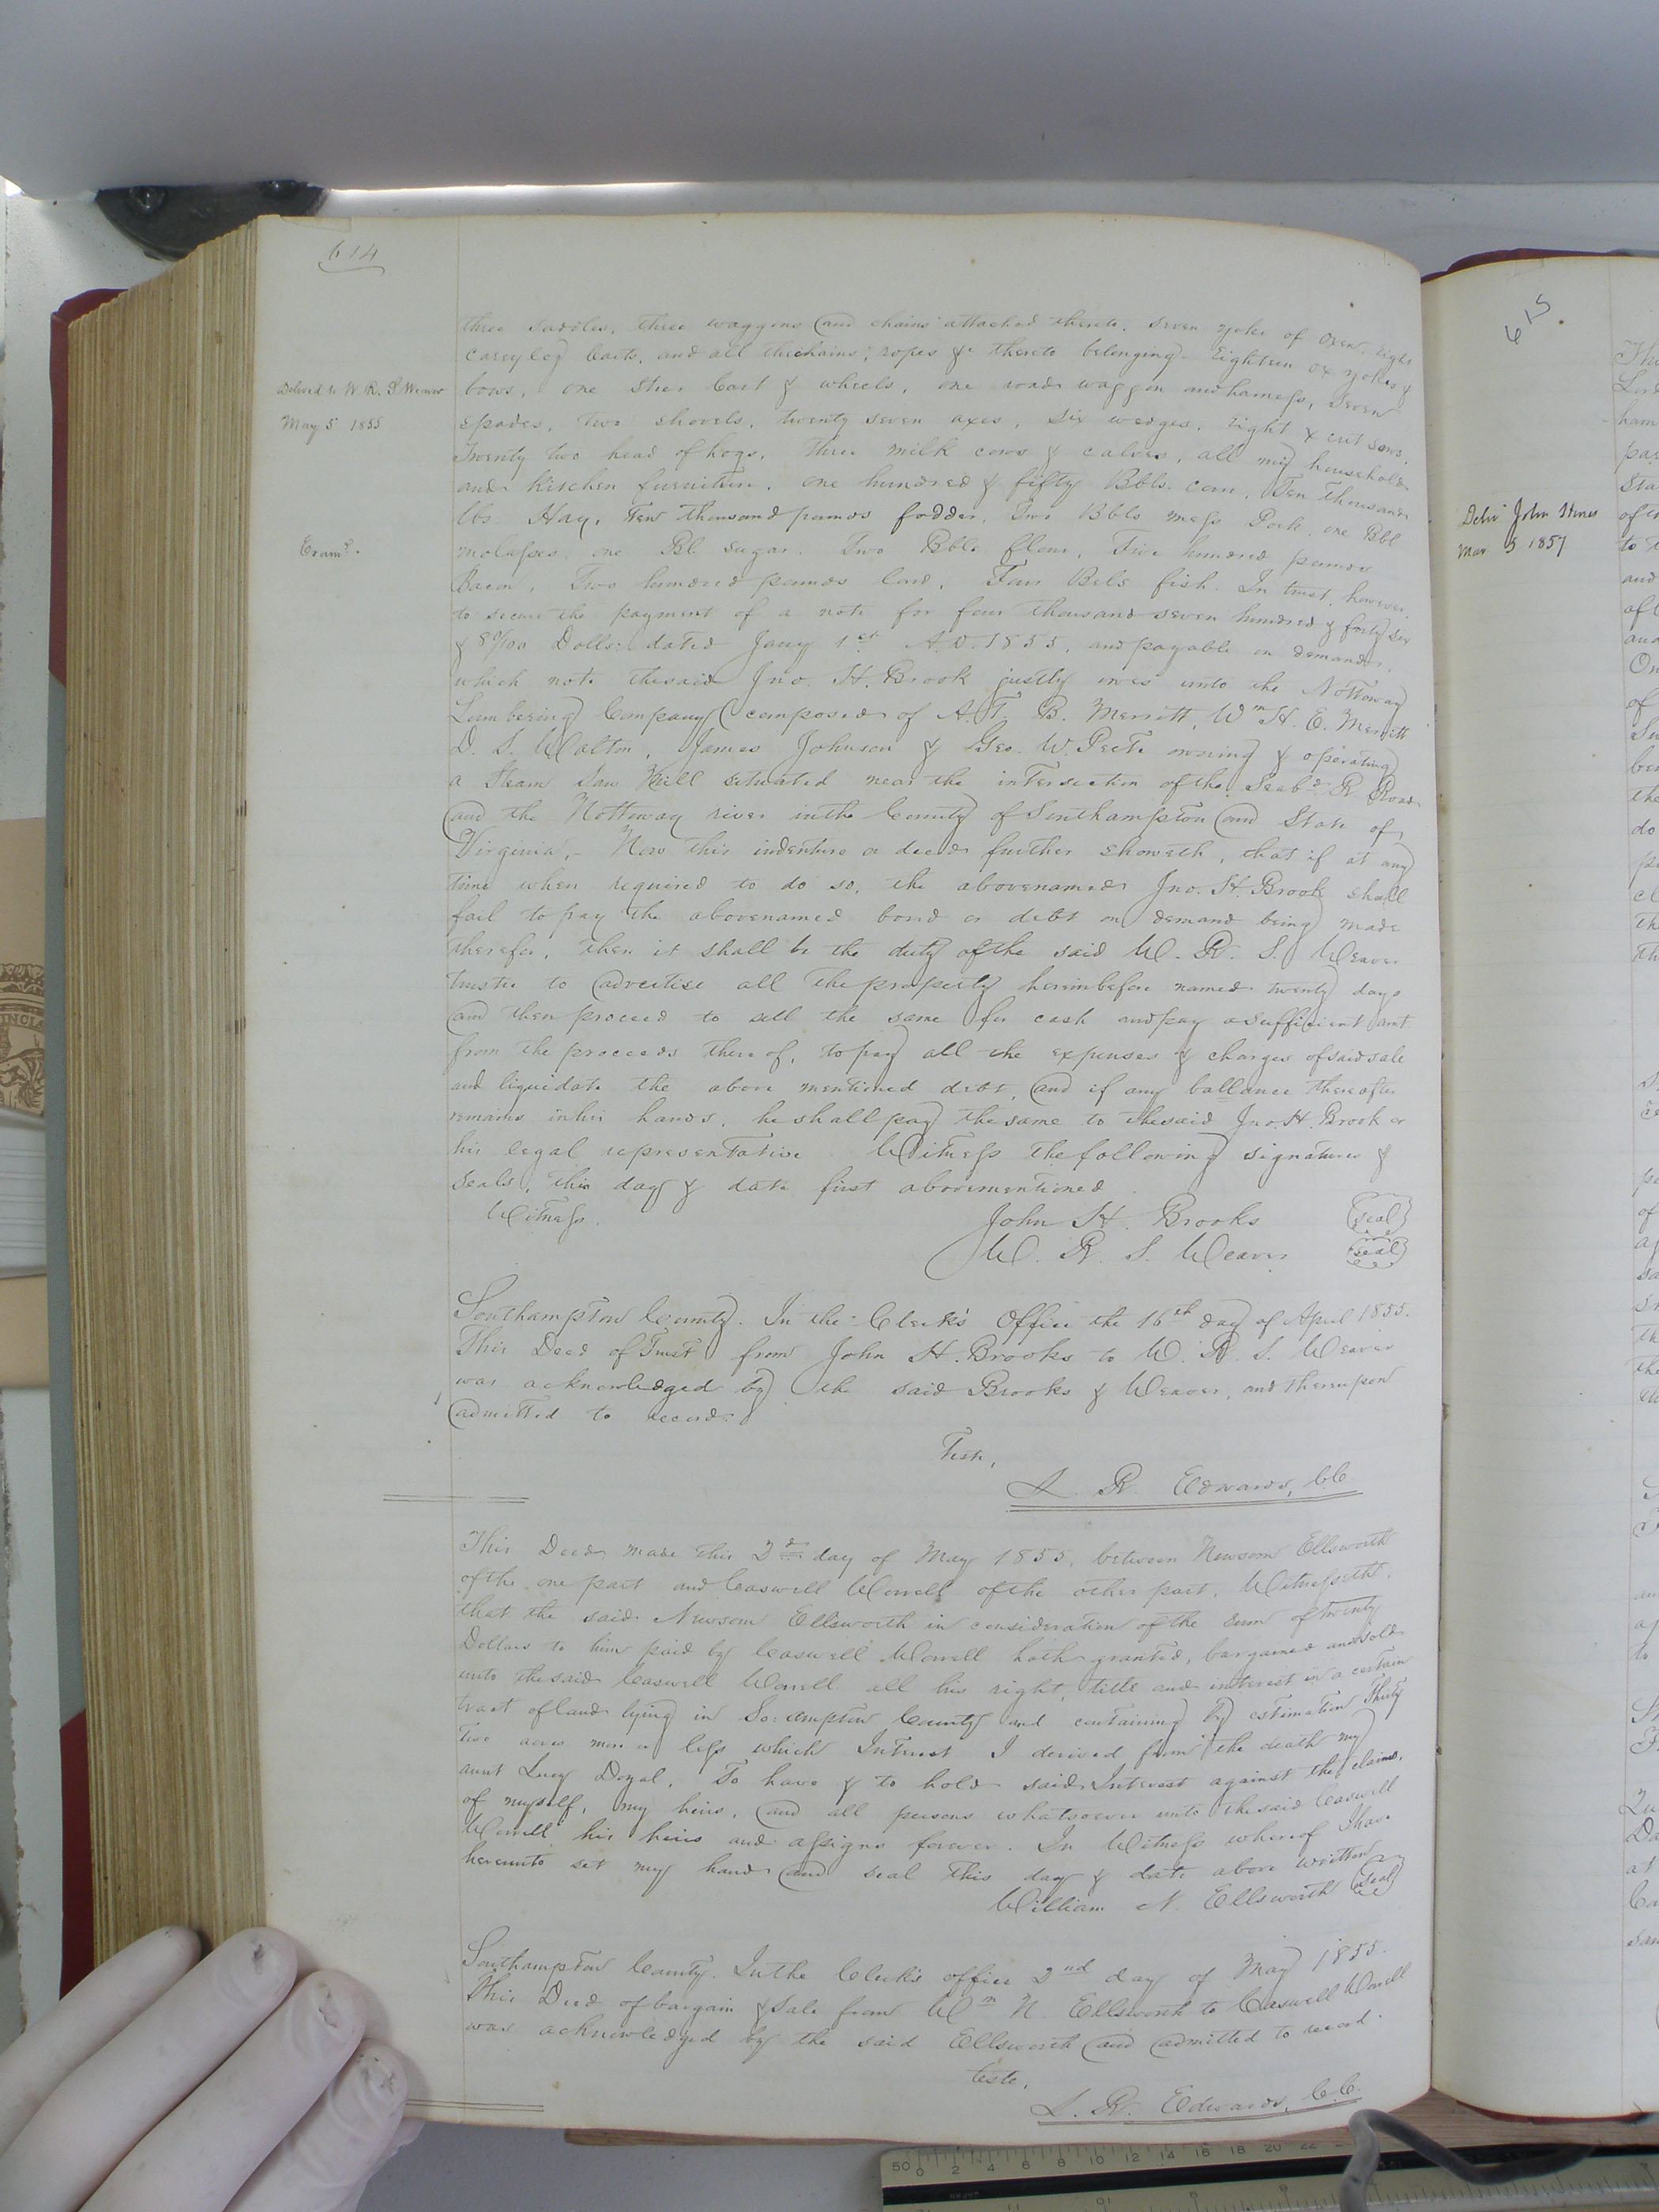 614
three saddles, three waggons and chains attached thereto, seven yoke of Oxen, Eight
carry log Carts, and all the chains, ropes &c thereto belonging - Eighteen ox yokes &
Deliverd to W. R. S. Weaver
May 5 1855
bows, one Steer Cart & wheels, one road waggon and harness, Seven
spades, two shovels, twenty seven axes, six wedges, Eight X cut saws,
Twenty two head of hogs, Three milk cows & calves, all my household
and kitchen furniture, one hundred & fifty Bbls. corn, Ten Thousand
lbs Hay, Ten thousand pounds fodder, Two Bbls mess Pork, one Bbl
Examd.
molasses, one Bl. sugar. Two Bbls flour, Five hundred pounds
Bacon, Two hundred pounds lard, Four Bbls fish. In trust, however,
to secure the payment of a note for four thousand seven hundred & forty six
& 80/100 Dolls: dated Jany 1st A.D. 1855, and payable on demand,
which note the said Jno. H. Brook justly owes unto the Nottoway
Lumbering Company (composed of A. T. B. Merritt, Wm H. E. Merritt
D. S. Walton, James Johnson & Geo. W. Peete owning & operating
a Steam Saw Mill situated near the intersection of the Seabd R Road
and the Nottoway river in the County of Southampton and State of
Virginia,- Now this indenture or deed further showeth, that if at any
time when required to do so, the abovenamed Jno. H. Brook shall
fail to pay the abovenamed bond or debt on demand being made
therefor, then it shall be the duty of the said W. R. S. Weaver
trustee to advertise all the property hereinbefore named twenty days
and then proceed to sell the same for cash and pay a sufficient amt
from the proceeds thereof, to pay all the expenses & charges of said sale
and liquidate the above mentioned debt, and if any ballance thereafter
remains in his hands, he shall pay the same to the said Jno. H. Brook or
his legal representative. Witness the following signatures &
seals, this day & date first abovementioned
Witness.
John H. Brooks (seal)
W. R. S. Weaver (seal)
Southampton County. In the Clerk's Office the 16th day of April 1855.
This Deed of Trust from John H. Brooks to W. R. S. Weaver
was acknowledged by the said Brooks & Weaver, and thereupon
admitted to record.
Teste,
L. R. Edwards, CC.
This Deed made this 2d day of May 1855, between Newsom Ellsworth
of the one part and Caswell Worrell of the other part, Witnesseth:
that the said Newsom Ellsworth in consideration of the sum of twenty
Dollars to him paid by Caswell Worrell hath granted, bargained and sold
unto the said Caswell Worrell all his right, title and interest in a certain
tract of land lying in So:ampton County and containing by estimation Thirty
Two acres more or less which Interest I derived from the death my
aunt Lucy Doyal. To have & to hold said Interest against the claims
of myself, my heirs, and all persons whatsoever unto the said Caswell
Worrell his heirs and assigns forever. In Witness whereof I have
hereunto set my hand and seal this day & date above written
William N. Ellsworth (seal)
Southampton County. In the Clerk's office 2nd day of May 1855.
This Deed of bargain & Sale from Wm N. Ellsworth to Caswell Worrell
was acknowledged by the said Ellsworth and admitted to record.
teste,
L. R. Edwards, C.C.
615
Delivd John
Mar 5 1857
50 0 2 4 6 8 10 12 14 16 18 20 22